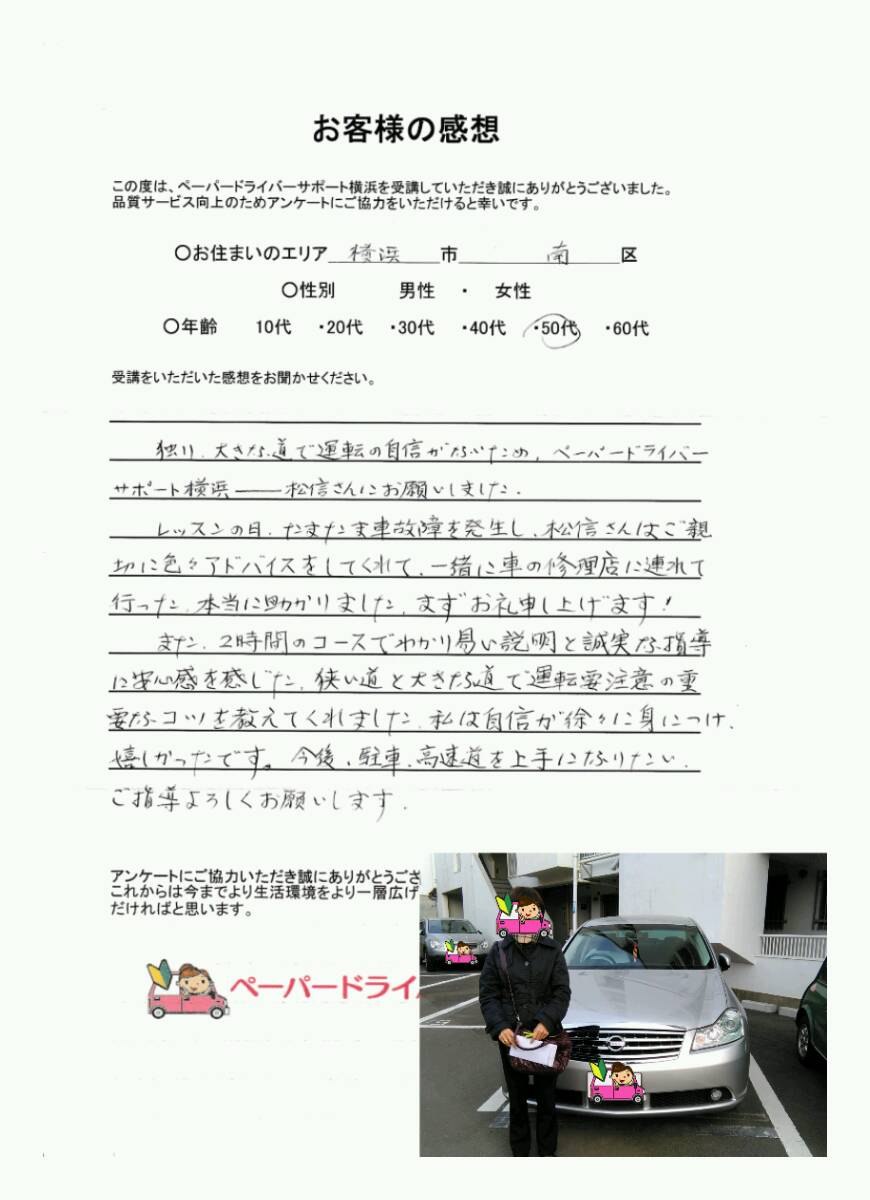 お客様の感想
この度は、ペーパードライバーサポート横浜を受講していただき誠にありがとうございました。
品質サービス向上のためアンケートにご協力をいただけると幸いです。
〇お住まいのエリア 横浜 市 南 区
〇性別 男性 ・ 女性
〇年齢 10代 ・20代 ・30代 ・40代 ・50代 ・60代
受講をいただいた感想をお聞かせください。
独り、大きな道で運転の自信がないため、ペーパードライバー
サポート横浜――松信さんにお願いしました.
レッスンの日、たまたま車故障を発生し、松信さんはご親
切に色々アドバイスをしてくれて、一緒に車の修理店に連れて
行った、本当に助かりました、まずお礼申し上げます!
また、2時間のコースでわかり易い説明と誠実な指導
に安心感を感じた、狭い道と大きな道で運転要注意の重
要なコツを教えてくれました、私は自信が徐々に身につけ、
嬉しかったです。今後、駐車、高速道を上手になりたい、
ご指導よろしくお願いします.
アンケートにご協力いただき誠にありがとうござ
これからは今までより生活環境をより一層広げ
だければと思います。
ペーパードライ